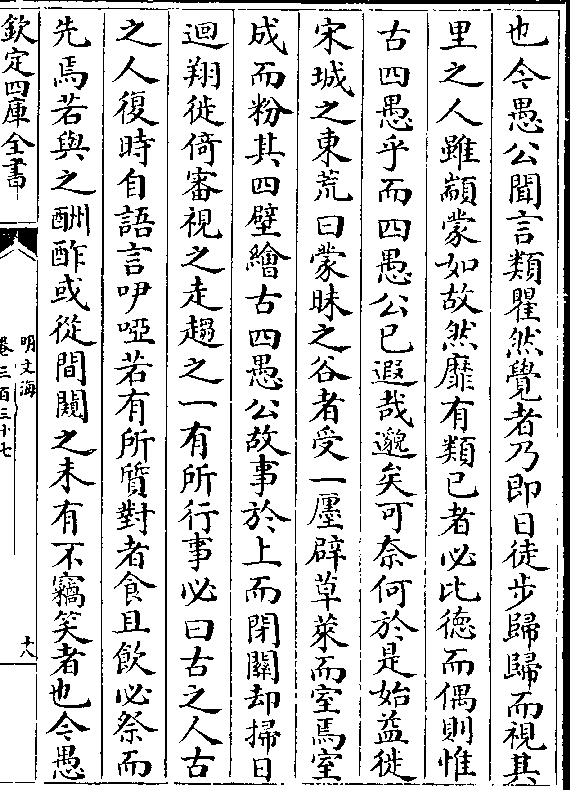 也今愚公聞言類瞿然覺者乃即日徒步歸歸而視其
里之人雖顓蒙如故然靡有類已者必比德而偶則惟
古四愚乎而四愚公已遐哉邈矣可奈何於是始益徙
宋城之東荒曰蒙昧之谷者受一廛辟草萊而室焉室
成而粉其四壁繪古四愚公故事於上而閉關却掃日
迴翔徙倚審視之走趨之一有所行事必曰古之人古
之人復時自語言吚啞若有所質對者食且飲必祭而
先焉若與之酬酢或從間闚之未有不竊笑者也今愚
欽定四庫全書
明文海
卷三百三十七
十八